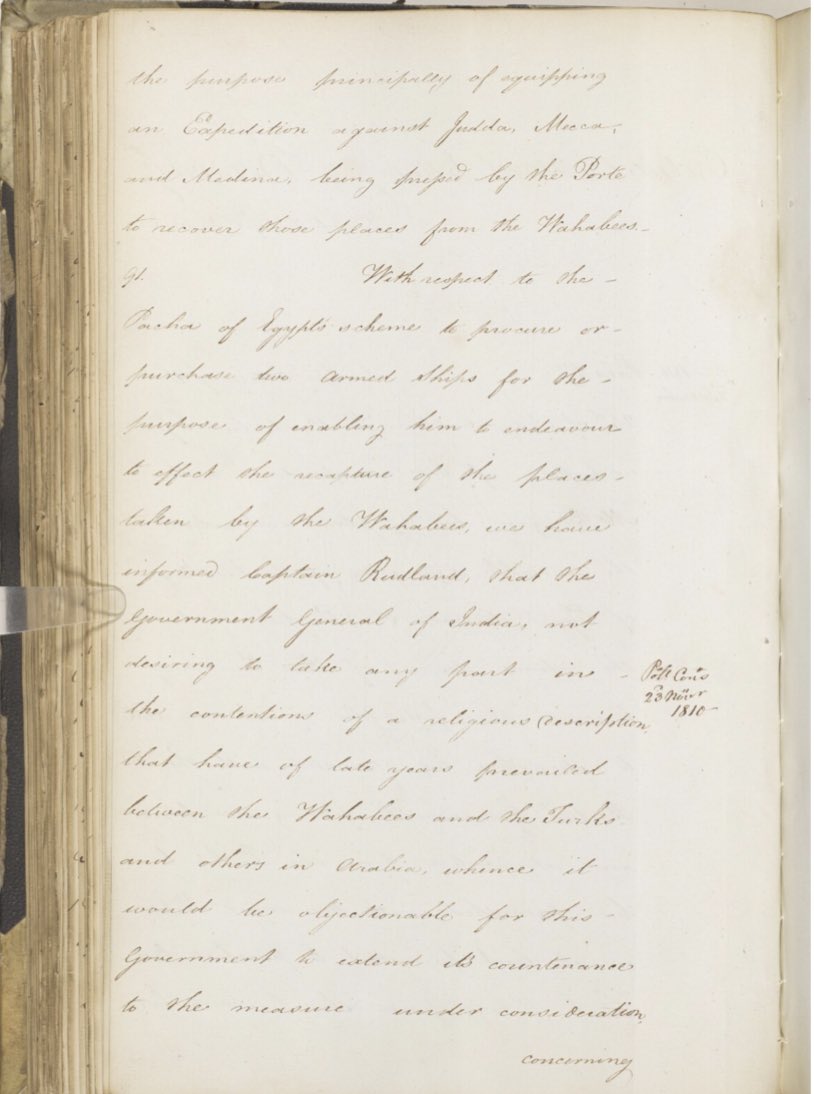 the purpose principally of equipping
an Expedition against Judda, Mecca,
and Medina, being press'd by the Porte
to recover those places from the Wahabees_
91. With respect to the -
Pacha of Egypt's scheme to procure or -
purchase two armed Ships for the -
purpose of enabling him to endeavour
to effect the recapture of the places -
taken by the Wahabees, we have
informed Captain Rudland, that the
Government General of India, not
desiring to take any part in -
the contentions of a religious description
that have of late years prevailed
between the Wahabees and the Turks
and others in Arabia, whence it
would be objectionable for this -
Government to extend its countenance
to the measure under consideration,
concerning
Poll Cons
23 Novr
1810